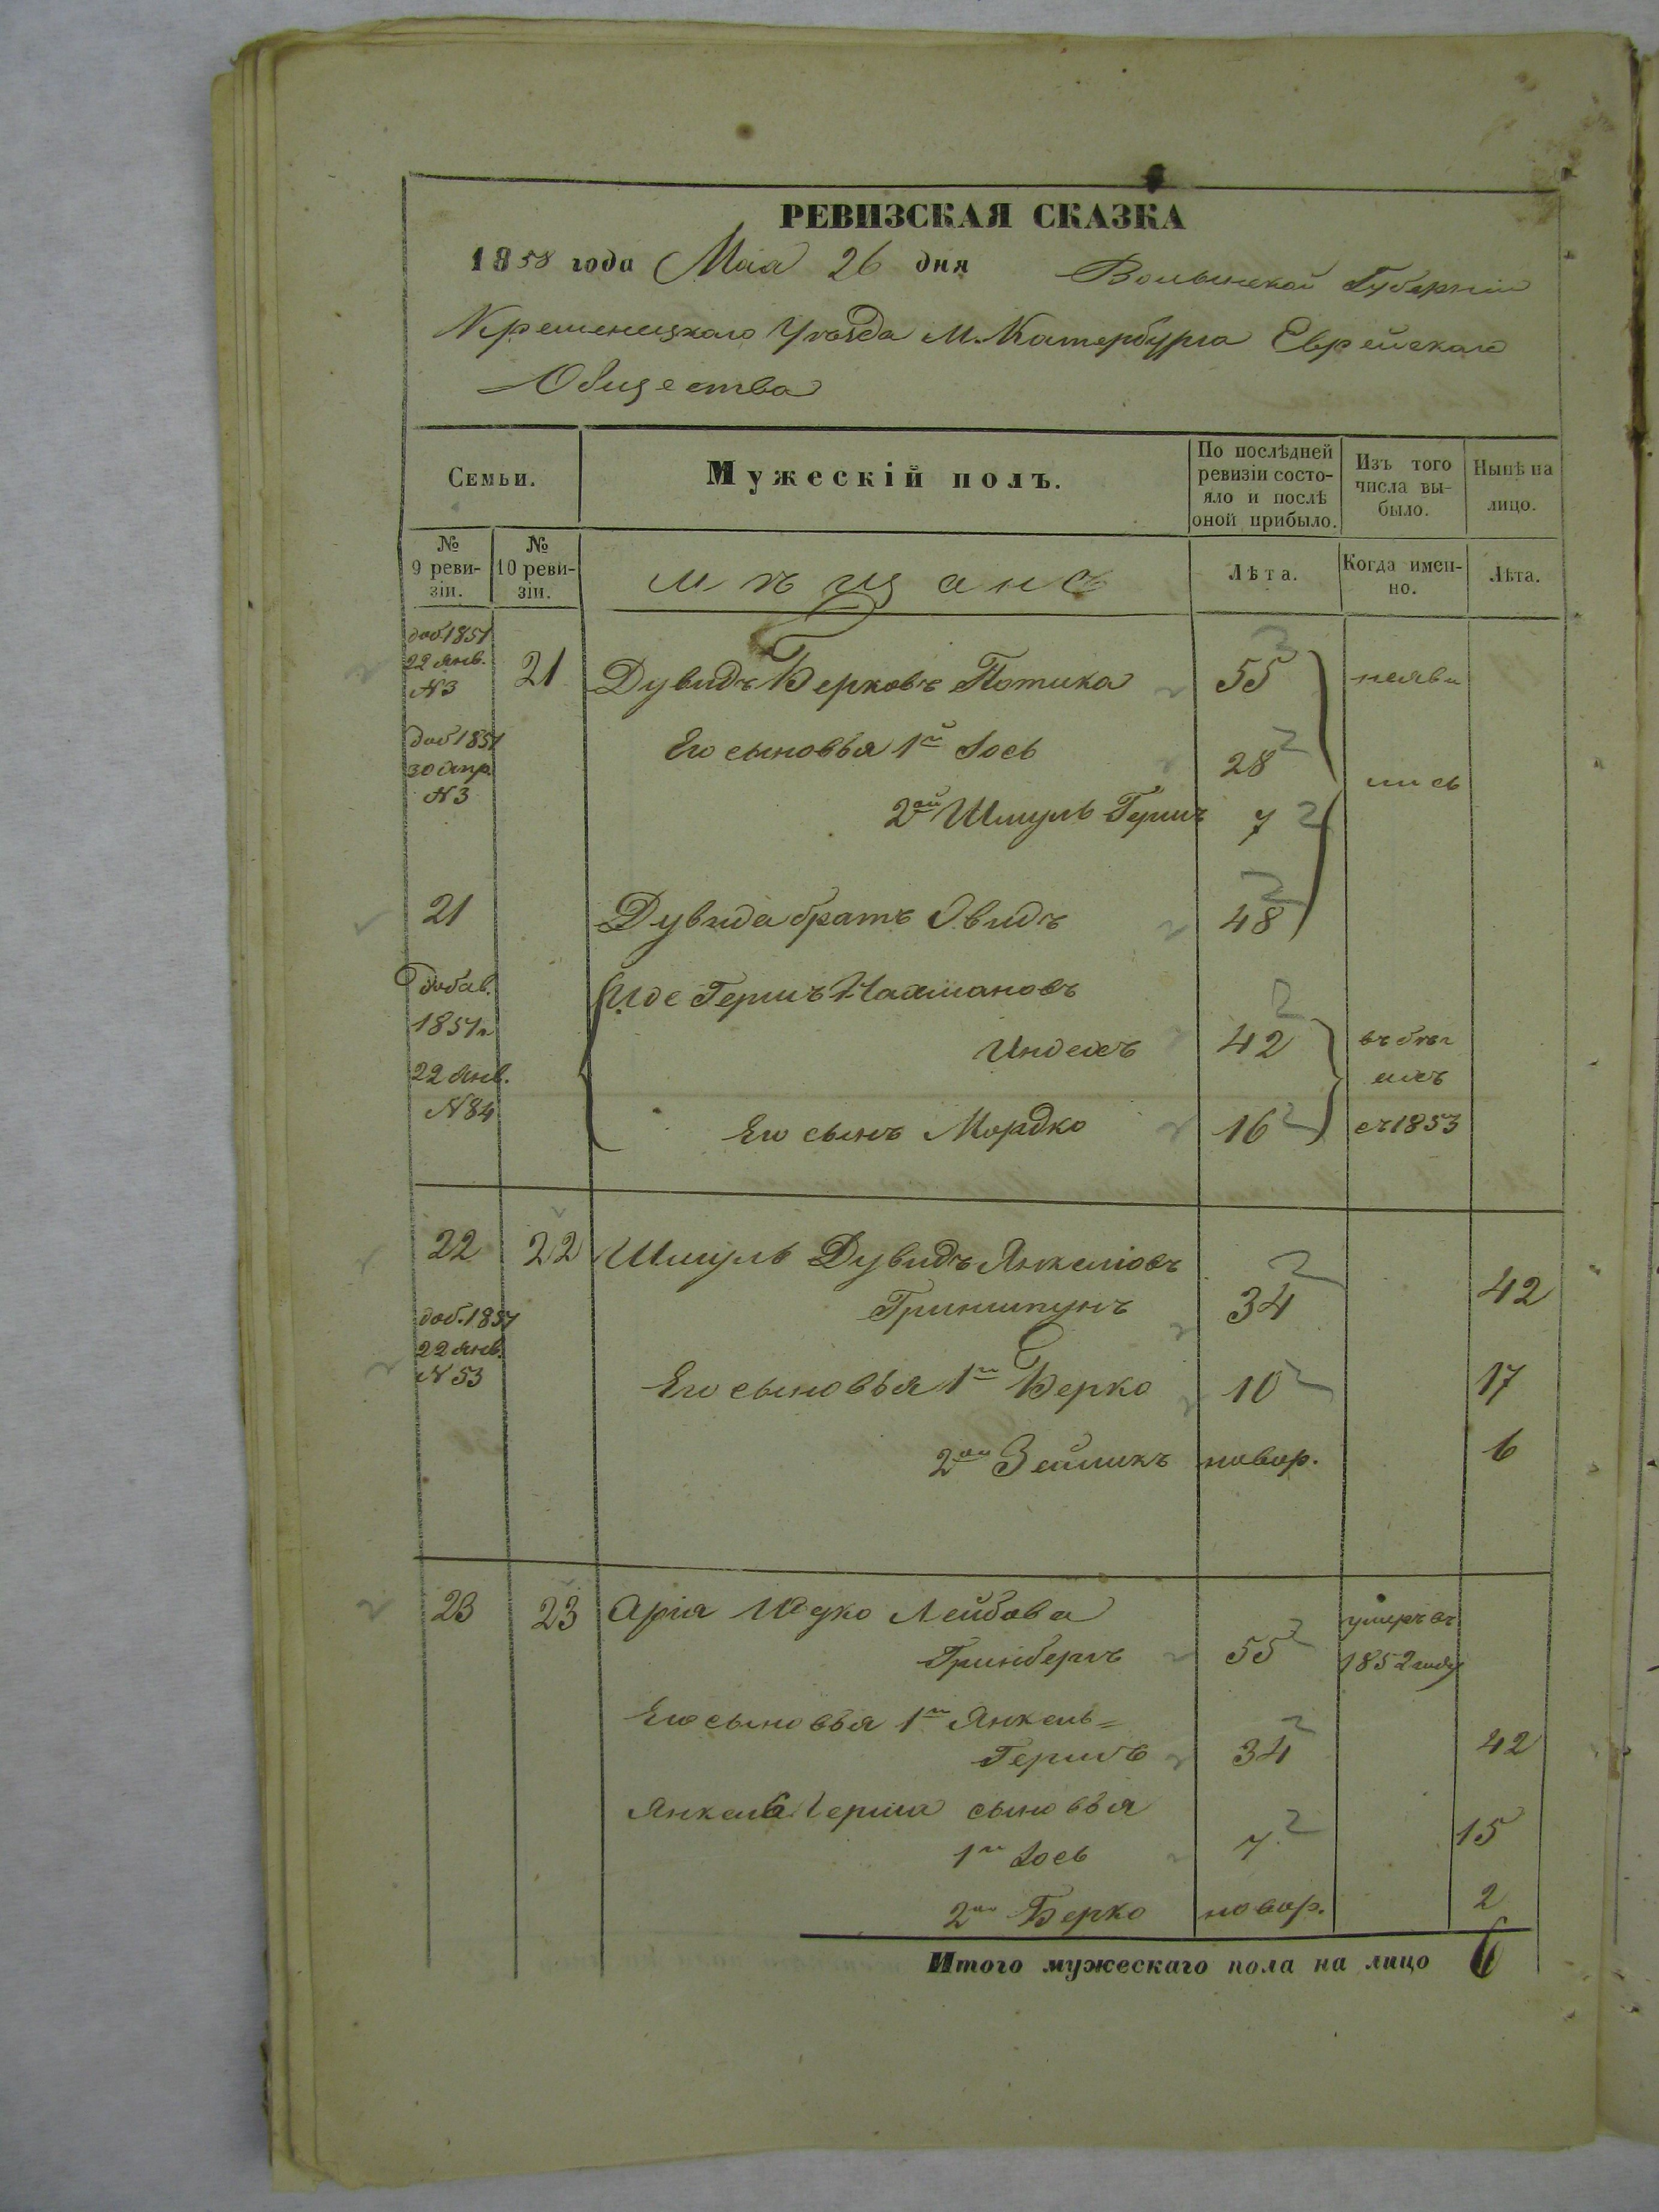 РЕВИЗСКАЯ СКАЗКА
1858 года Мая 26 дня Волынской Губерніи
Кременецкаго Уѣзда М. Катербурга Еврейскаго
Общества
Семьи.
Мужескій полъ.
По послѣдней ревизіи состо-
яло и послѣ оной прибыло.
Изъ того числа вы-
было.
Нынѣ на лицо.
№ 9 реви-
зіи.
№ 10 реви-
зіи.
мѣщане
Лѣта.
Когда имен-
но.
Лѣта.
доб. 1851 22 Янв. N 3 21 Дувидъ Берковъ Потика 55 неяви
доб 1851 30 Апр. N 3 Его сыновья 1й Іось 28 лись
2ой Шмуль Гершъ 7
21 Дувида братъ Овидъ 48
добав. 1851 г. Иде Гершъ Нахмановъ
22 Янв. 42 въ бѣг
N 84 Его сынъ Мордко 16 съ 1853
22 22 Шмуль Дувидъ Янкеліовъ
Гриншпунъ 34 42
доб. 1851 22 Янв. N 53 Его сыновья 1й Берко 10 17
2ой Зейликъ новор. 6
23 23 Арія Лейбова умеръ въ
Гринбергъ 55 1852 году
Его сыновья 1й Янкель=
Гершъ 34 42
Янкеля Герша сыновья
1й Іось 7 15
2ой Берко новор. 2
Итого мужескаго пола на лицо 6